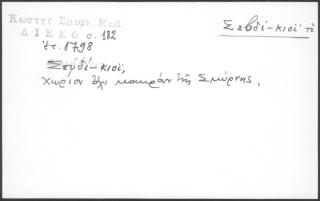 Κωστες Σμυρν. Κωδ.
Σεβδί-κιοϊ τό
ΔΙΕΕ6 σ. 182
ἔτ. 1798
Σεβδί-κιοϊ,
χωρίον ὄχι μακράν τῆς Σμύρνης.